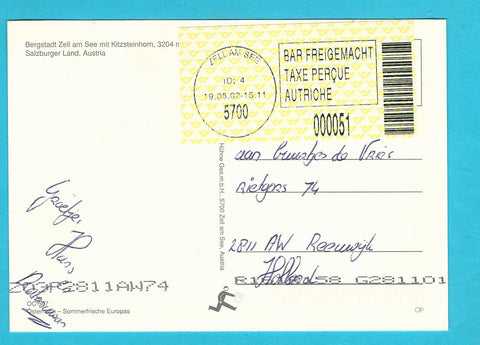 Bergstadt Zell am See mit Kitzsteinhorn, 3204 m
Salzburger Land, Austria
ZELL AM SEE
ID: 4
19.08.02-16.11
5700
BAR FREIGEMACHT
TAXE PERÇUE
AUTRICHE
000051
Huhne Ges.m.b.H., 5700 Zell am See, Austria
aan
de Vries
Rietgors 74
2811 AW Reeuwijk
Holland
Groetjes
Hans
2811AW74
58 G281101
Österreich – Sommerfrische Europas